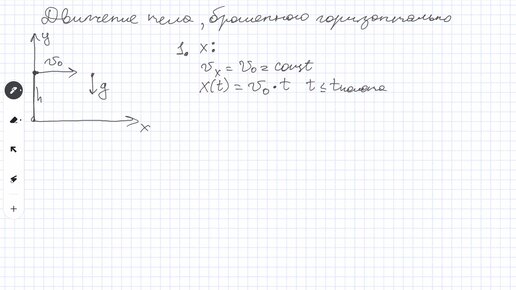 Движение тела, брошенного горизонтально
y
v₀
g
h
x
1. x:
vₓ = v₀ = const
x(t) = v₀ · t t ≤ tполета